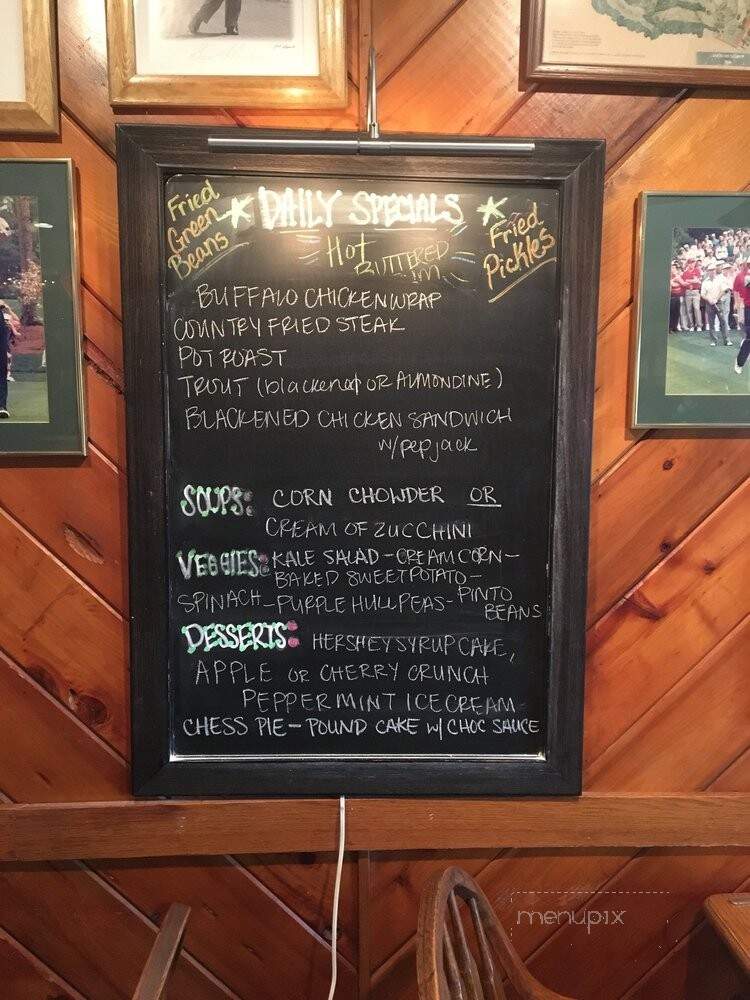 Fried
Green
Beans
* DAILY SPECIALS *
Hot
BUTTERED
Fried
Pickles
BUFFALO CHICKEN WRAP
COUNTRY FRIED STEAK
POT ROAST
TROUT (blackened OR ALMONDINE)
BLACKENED CHICKEN SANDWICH
w/pepjack
SOUPS: CORN CHOWDER OR
CREAM OF ZUCCHINI
VEGGIES: KALE SALAD - CREAM CORN -
BAKED SWEET POTATO -
SPINACH - PURPLE HULL PEAS - PINTO
BEANS
DESSERTS: HERSHEY SYRUP CAKE,
APPLE OR CHERRY CRUNCH
PEPPERMINT ICE CREAM
CHESS PIE - POUND CAKE w/ CHOC SAUCE
menupix